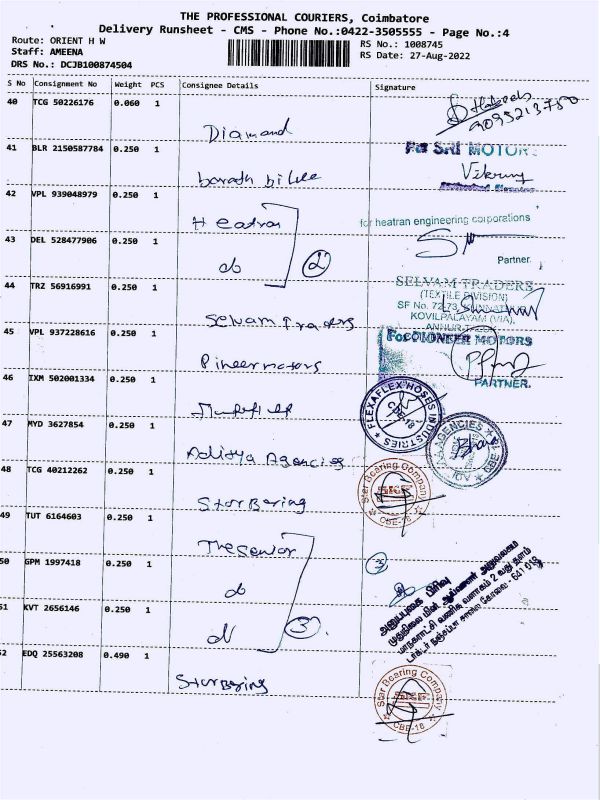 THE PROFESSIONAL COURIERS, Coimbatore
Delivery Runsheet - CMS - Phone No.:0422-3505555 - Page No.:4
Route: ORIENT H W
Staff: AMEENA
DRS No.: DCJB100874504
RS No.: 1008745
RS Date: 27-Aug-2022
S No Consignment No Weight PCS Consignee Details Signature
40 TCG 50226176 0.060 1
Diamond
41 BLR 2150587784 0.250 1
For SRI MOTORS
barath
42 VPL 939048979 0.250 1
Heatran
for heatran engineering corporations
43 DEL 528477906 0.250 1
do
2
Partner.
44 TRZ 56916991 0.250 1
Selvam traders
SELVAM TRADERS
(TEXTILE DIVISION)
SF No. 72-73,
KOVILPALAYAM (VIA),
45 VPL 937228616 0.250 1
Pineer motors
For PIONEER MOTORS
PARTNER.
46 IXM 502001334 0.250 1
FLEXAFLEX HOSES INDUSTRIES
CBE-18
47 MYD 3627854 0.250 1
Aditya Agencies
AGENCIES
48 TCG 40212262 0.250 1
Star Bering
Star Bearing Company
CBE-18
49 TUT 6164603 0.250 1
The senior
50 GPM 1997418 0.250 1
do
51 KVT 2656146 0.250 1
do
3
அனுப்புகை பிரிவு
52 EDQ 25563208 0.490 1
Star Bering
Star Bearing Company
CBE-18